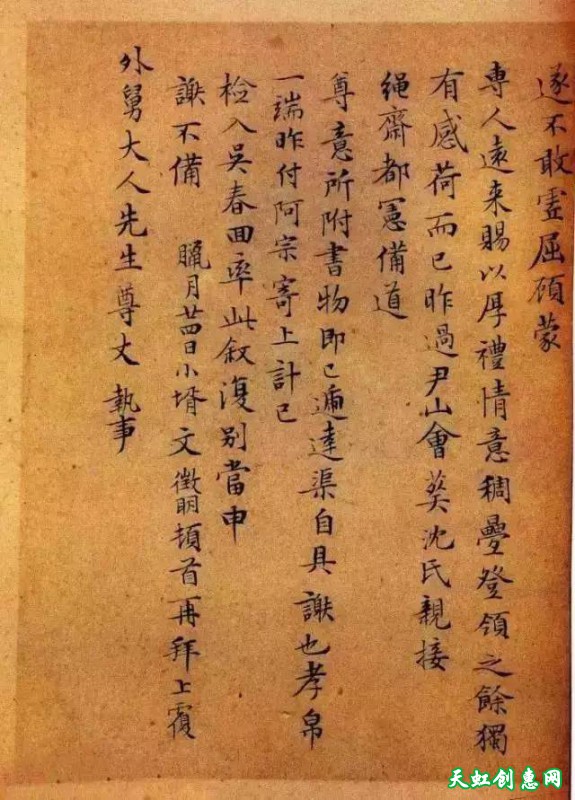 遂不敢虛屈顧蒙
専人遠來賜以厚禮情意稠疊登領之餘獨
有感荷而已昨過尹山會葬沈氏親接
繩齋都憲備道
尊意所附書物即已遞達渠自具謝也孝帛
一端昨付阿宗寄上計已
檢入吳春回率此叙復别當申
謝不備　臘月廿四日小壻文徵明頓首再拜上覆
外舅大人先生尊丈 執事
天虹创惠网